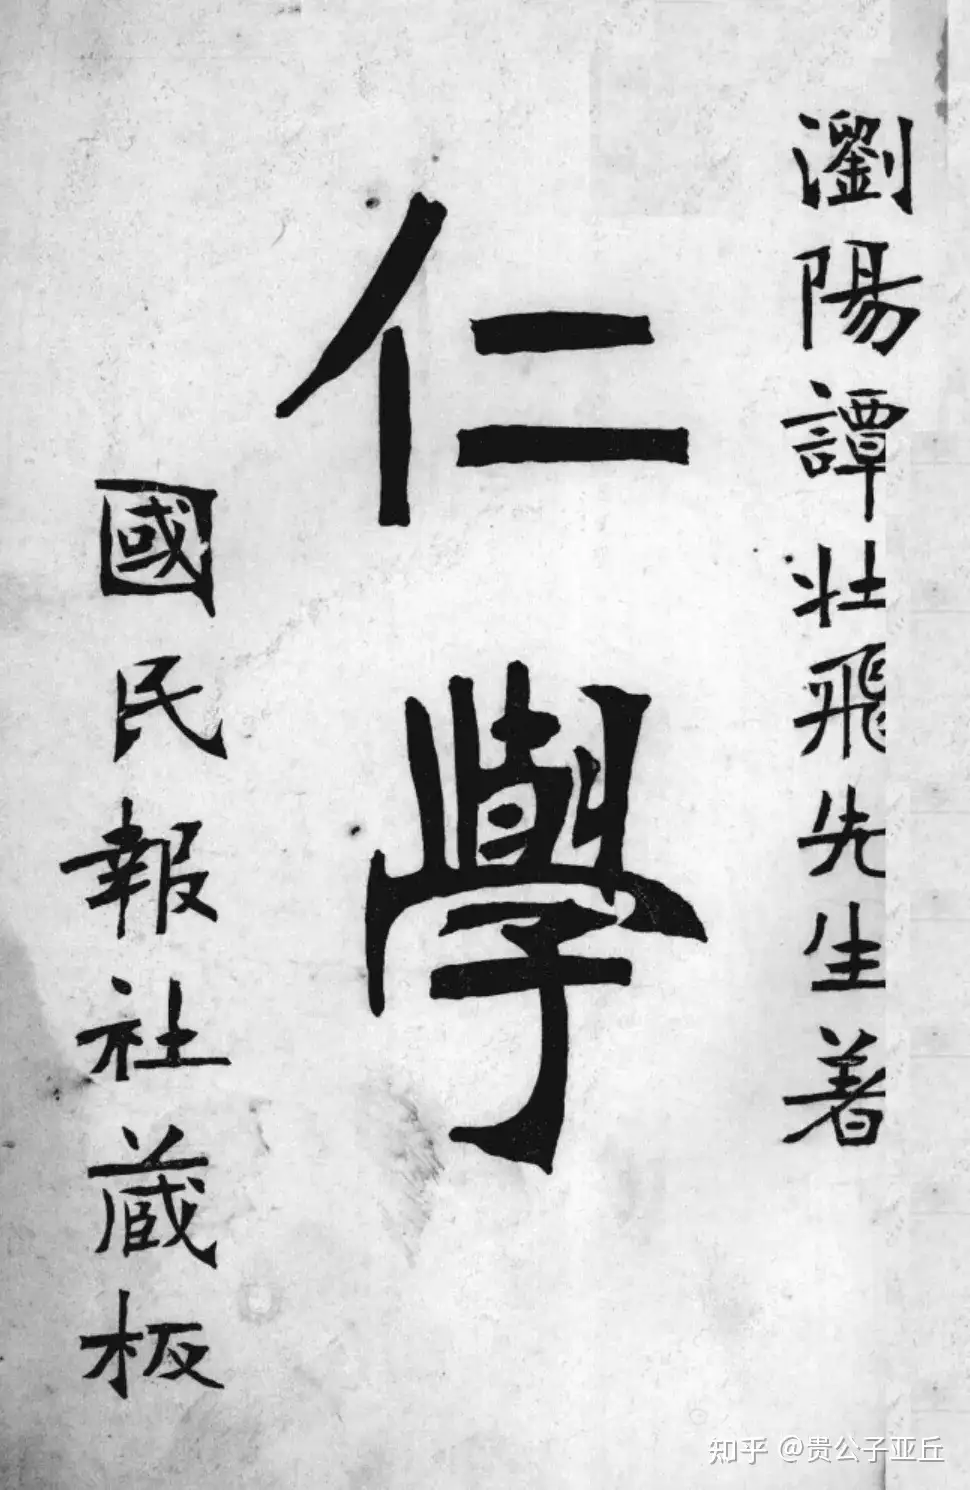 瀏陽譚壯飛先生著
仁學
國民報社蔵板
知乎 @贵公子亚丘